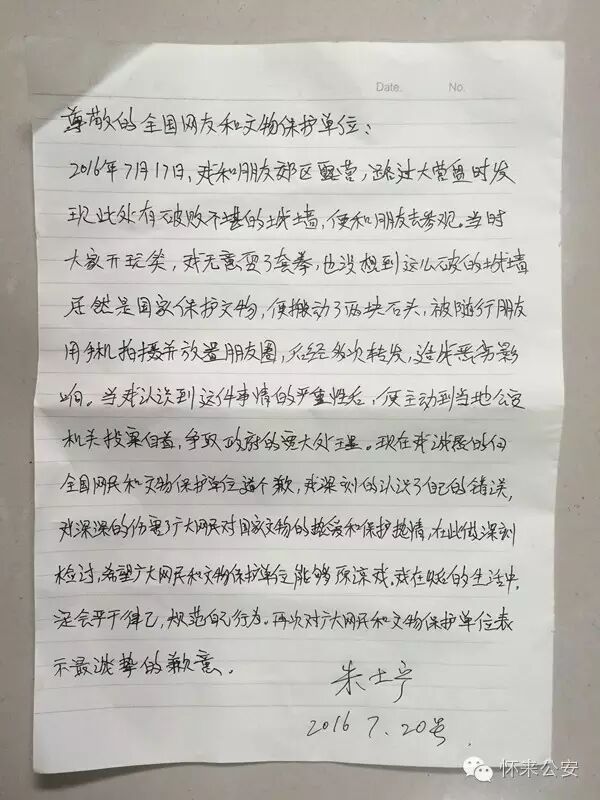 Date. No.
尊敬的全国网友和文物保护单位:
2016年7月17日,我和朋友郊区露营,路过大营盘时发
现此处有破败不堪的城墙,便和朋友去参观。当时
大家开玩笑,我无意耍了套拳,也没想到这么破的城墙
居然是国家保护文物,便搬动了两块石头,被随行朋友
用手机拍摄并放置朋友圈,后经多次转发,造成恶劣影
响。当我认识到这件事情的严重性后,便主动到当地公安
机关投案自首,争取政府的宽大处理。现在我诚恳的向
全国网民和文物保护单位道个歉,我深刻的认识了自己的错误,
我深深的伤害了广大网民对国家文物的热爱和保护热情,在此做深刻
检讨,希望广大网民和文物保护单位能够原谅我。我在以后的生活中,
定会严于律己,规范自己行为。再次对广大网民和文物保护单位表
示最诚挚的歉意。
朱士宁
2016 7.20号.
怀来公安